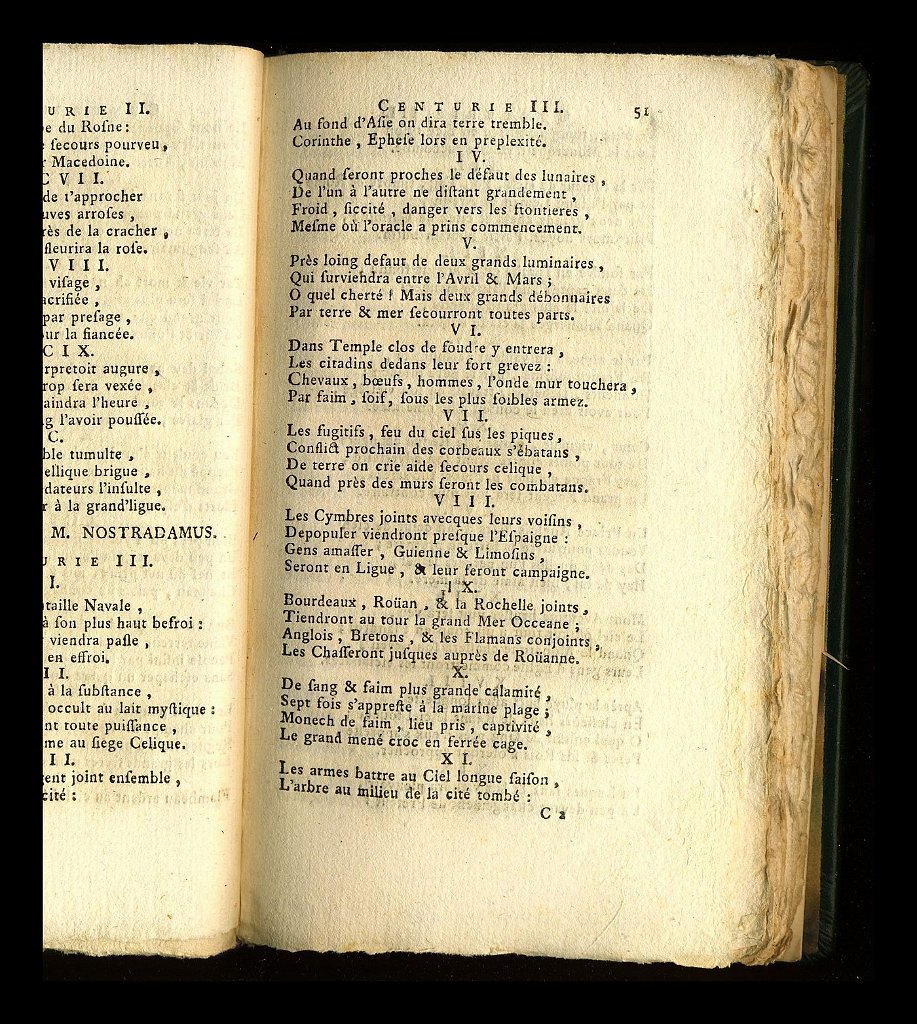 URIE II.
e du Roſne:
ſecours pourveu,
Macedoine.
CVII.
de t'approcher
uves arroſes,
rès de la cracher,
fleurira la roſe.
VIII.
viſage,
acrifiée,
par preſage,
ur la fiancée.
CIX.
rpretoit augure,
rop ſera vexée,
aindra l'heure,
g l'avoir pouſſée.
C.
ble tumulte,
ellique brigue,
dateurs l'inſulte,
r à la grand'ligue.
M. NOSTRADAMUS.
URIE III.
I.
taille Navale,
à ſon plus haut befroi:
viendra paſle,
en effroi.
II.
à la ſubſtance,
occult au lait myſtique:
nt toute puiſſance,
me au ſiege Celique.
II.
gent joint enſemble,
cité:
CENTURIE III. 51
Au fond d'Aſie on dira terre tremble.
Corinthe, Epheſe lors en preplexité.
IV.
Quand ſeront proches le défaut des lunaires,
De l'un à l'autre ne diſtant grandement,
Froid, ſiccité, danger vers les frontieres,
Meſme où l'oracle a prins commencement.
V.
Près loing defaut de deux grands luminaires,
Qui ſurviendra entre l'Avril & Mars;
O quel cherté! Mais deux grands débonnaires
Par terre & mer ſecourront toutes parts.
VI.
Dans Temple clos de foudre y entrera,
Les citadins dedans leur fort grevez:
Chevaux, bœufs, hommes, l'onde mur touchera,
Par faim, ſoif, ſous les plus foibles armez.
VII.
Les fugitifs, feu du ciel ſus les piques,
Conflict prochain des corbeaux s'ébatans,
De terre on crie aide ſecours celique,
Quand près des murs ſeront les combatans.
VIII.
Les Cymbres joints avecques leurs voiſins,
Depopuler viendront preſque l'Eſpaigne:
Gens amaſſer, Guienne & Limoſins,
Seront en Ligue, & leur feront campaigne.
IX.
Bourdeaux, Roüan, & la Rochelle joints,
Tiendront au tour la grand Mer Occeane;
Anglois, Bretons, & les Flamans conjoints,
Les Chaſſeront juſques auprès de Roüanne.
X.
De ſang & faim plus grande calamité,
Sept fois s'appreſte à la marine plage;
Monech de faim, lieu pris, captivité,
Le grand mené croc en ferrée cage.
XI.
Les armes battre au Ciel longue ſaiſon,
L'arbre au milieu de la cité tombé:
C 2